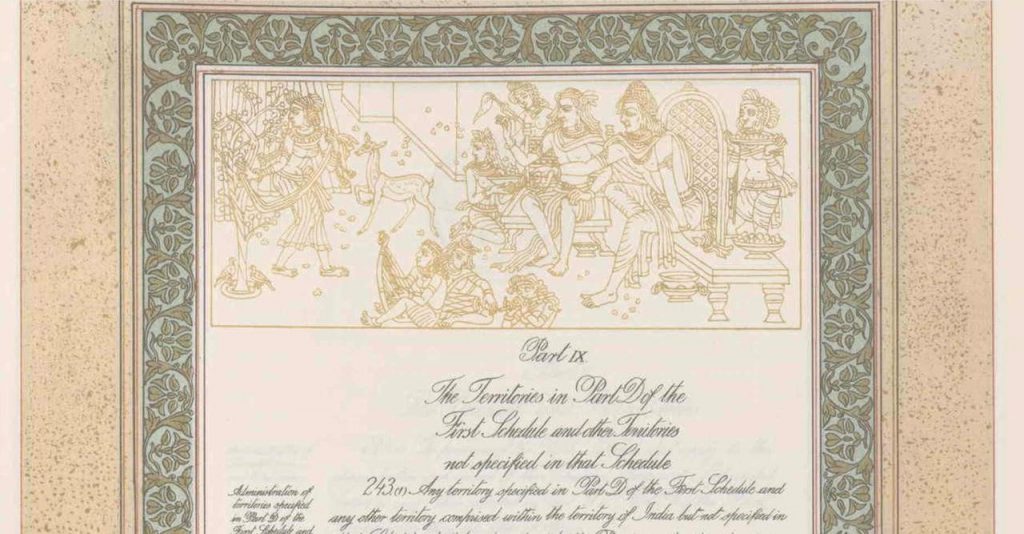 Part IX
The Territories in Part D of the
First Schedule and other Territories
not specified in that Schedule
243.(1) Any territory specified in Part D of the First Schedule and
any other territory comprised within the territory of India but not specified in
Administration of
territories specified
in Part D of the
First Schedule and